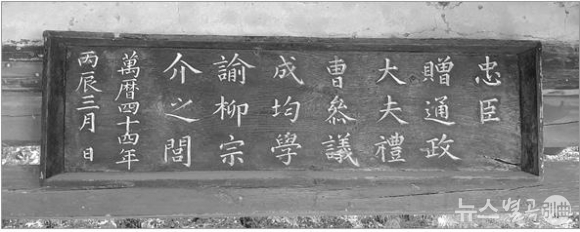 忠臣
贈通政
大夫禮
曹叅議
成均學
諭柳宗
介之閭
萬曆四十四年
丙辰三月 日
뉴스별곡 別曲